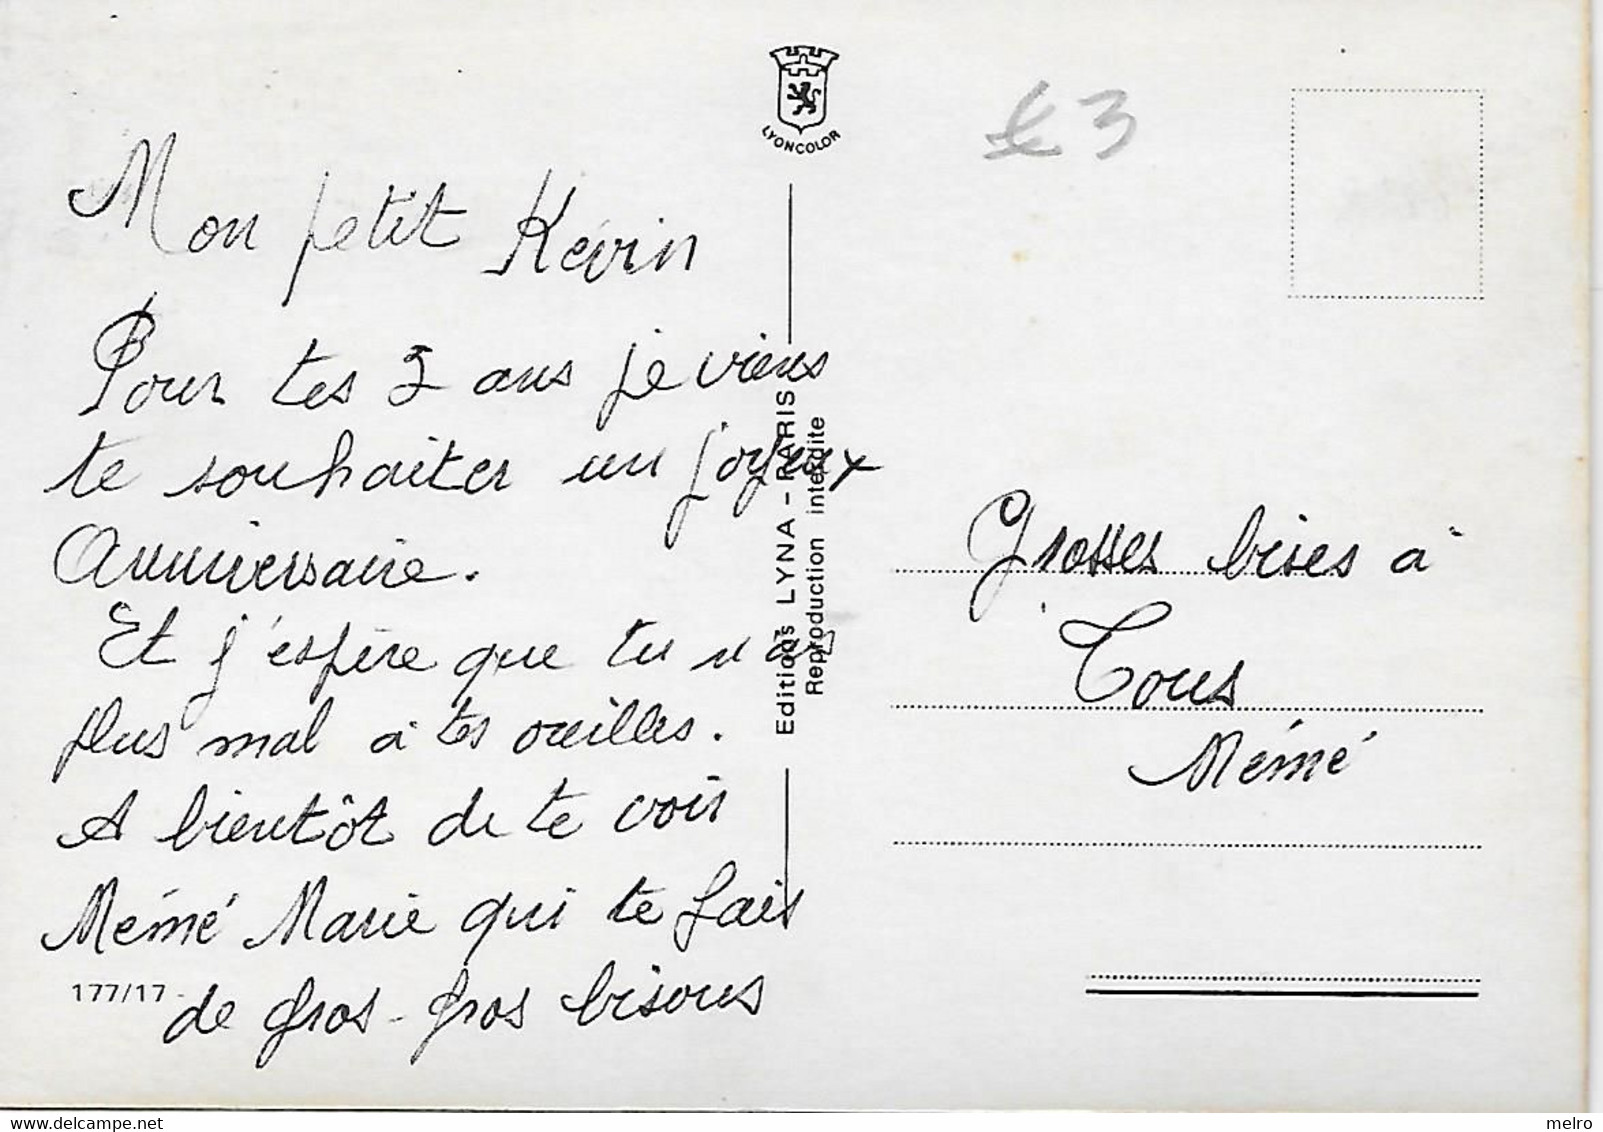 LYONCOLOR
3
Mon petit Kévin
Pour tes 3 ans je viens
te souhaiter un joyeux
Anniversaire.
Et j'espère que tu n'as
plus mal à tes oreilles.
A bientôt de te voir
Mémé Marie qui te fais
de gros-gros bisous
177/17
Editions LYNA - PARIS
Reproduction interdite
Grosses bises à
Tous
Mémé
delcampe.net
melro